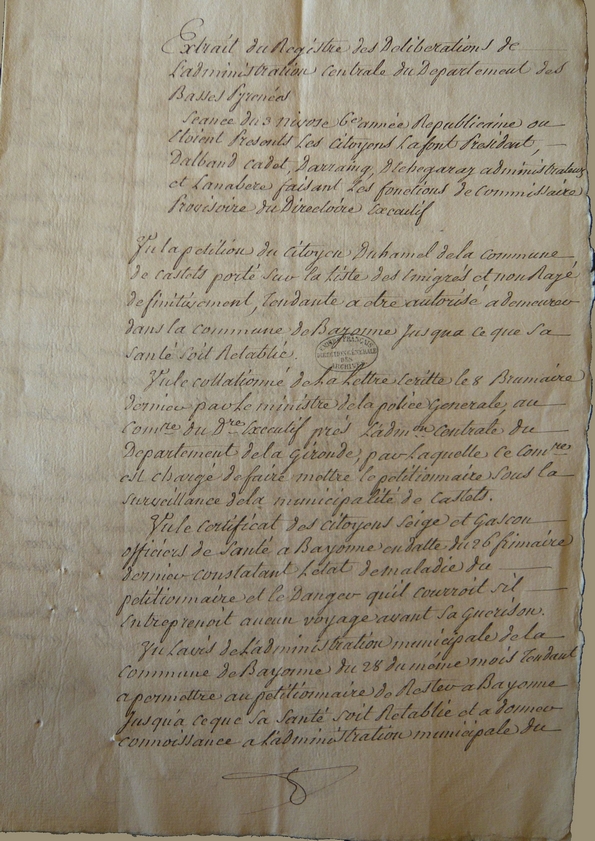 Extrait du Registre des Deliberations de
L'administration Centrale du Departement des
Basses Pyrenées
Seance du 3 nivose 6e année Republicaine ou
Etoient Presents Les Citoyens Lafont President,
Dalband Cadet, Darraing, Detchegaray administrateurs
et Lanabere faisant Les fonctions de Commissaire
Provisoire du Directoire Executif
Vu la petition du Citoyen Duhamel de la Commune
de Castets porté sur la Liste des Emigrés et non Rayé
definitivement, tendante a etre autorisé a demeurer
dans la commune de Bayonne Jusqua ce que Sa
Santé soit Retablie.
Vu le collationné de la Lettre Ecritte le 8 Brumaire
dernier par Le ministre de la police Generale, au
Comre du Dre Executif prés L'admon Centrale du
Departement de la Gironde, par Laquelle ce Comre
est chargé de faire mettre le petitionnaire sous la
surveillance de la municipalité de Castets.
Vu le certificat des citoyens Soige et Gascou
officiers de Santé a Bayonne en datte du 26 frimaire
dernier constatant L'etat de maladie du
petitionnaire et le Danger quil courroit sil
Entreprenoit aucun voyage avant Sa Guerison.
Vu Lavis de L'administration municipale de la
Commune de Bayonne du 28 du meme mois tendant
a permettre au petitionnaire de Rester a Bayonne
Jusqua ce que Sa Santé soit Retablie et a donner
connoissance a L'administration municipale du